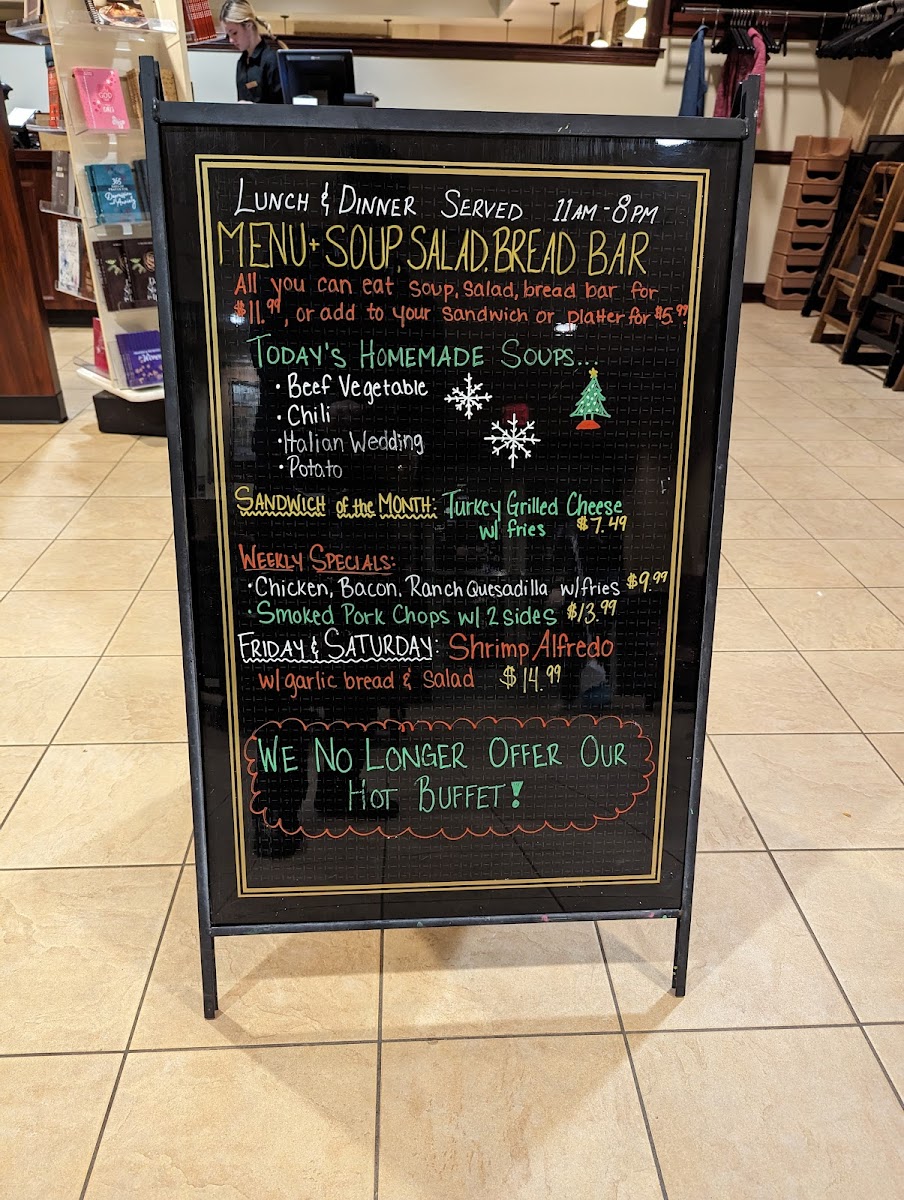 LUNCH & DINNER SERVED 11AM-8PM
MENU + SOUP, SALAD, BREAD BAR
All you can eat soup, salad, bread bar for
$11.99, or add to your sandwich or platter for $5.99
TODAY'S HOMEMADE SOUPS...
• Beef Vegetable
• Chili
• Italian Wedding
• Potato
SANDWICH of the MONTH: Turkey Grilled Cheese
w/ fries $7.49
WEEKLY SPECIALS:
• Chicken, Bacon, Ranch Quesadilla w/fries $9.99
• Smoked Pork Chops w/ 2 sides $13.99
FRIDAY & SATURDAY: Shrimp Alfredo
w/ garlic bread & salad $14.99
WE NO LONGER OFFER OUR
HOT BUFFET!